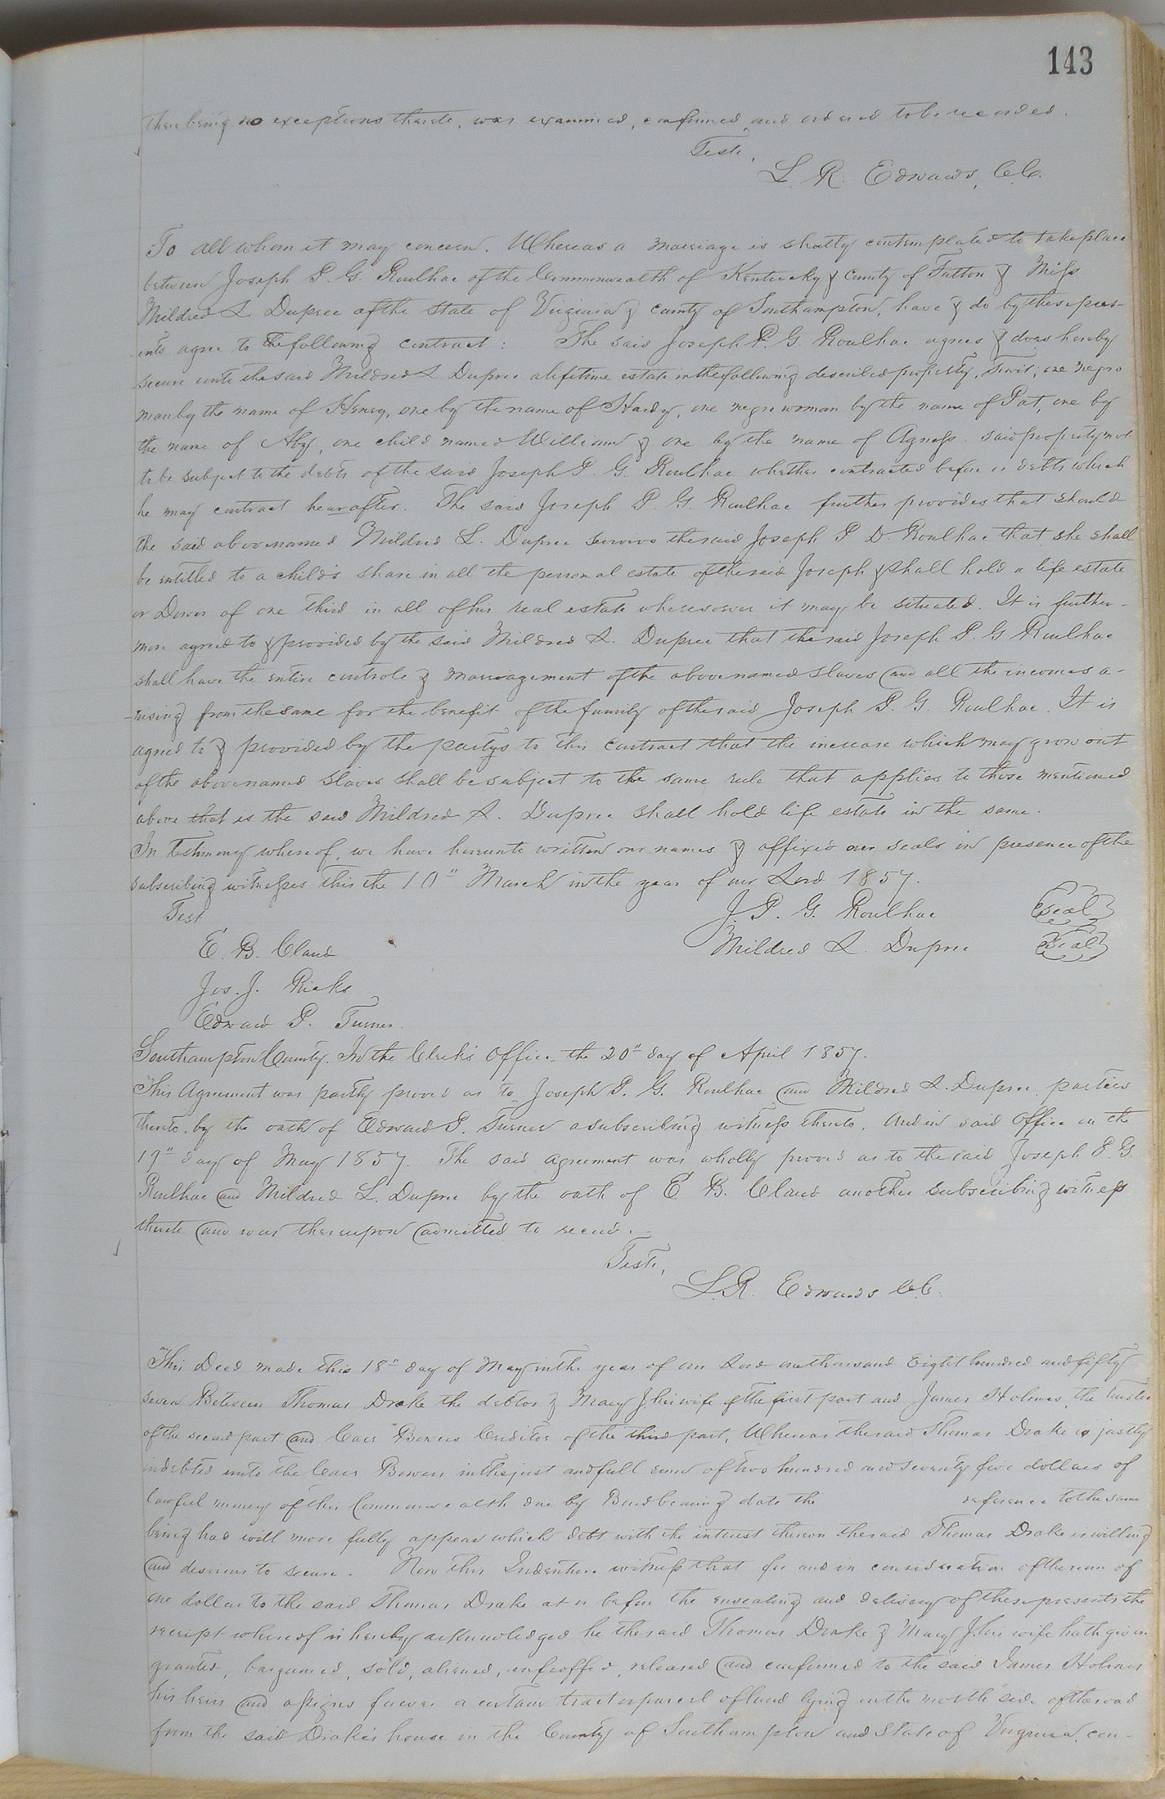 143
there being no exceptions thereto, was examined, confirmed and ordered to be recorded.
Teste,
L. R. Edwards, C.C.
To all whom it may concern. Whereas a marriage is shortly contemplated to take place
between Joseph P. G. Roulhac of the Commonwealth of Kentucky & County of Fulton & Miss
Mildred L. Dupree of the State of Virginia & county of Southampton, have & do by these pres-
ents agree to the following contract: The said Joseph P. G. Roulhac agrees & does hereby
secure unto the said Mildred L Dupree a lifetime estate in the following described property, Towit; one negro
man by the name of Henry, one by the name of Hardy, one negro woman by the name of Pat, one by
the name of Aby, one child named William & one by the name of Agness. said property not
to be subject to the debts of the said Joseph P. G. Roulhac whether contracted before or debts which
he may contract hearafter. The said Joseph P. G. Roulhac further provides that should
the said above named Mildred L. Dupree survive the said Joseph P D Roulhac that she shall
be entitled to a child's share in all the personal estate of the said Joseph & shall hold a life estate
or Dower of one third in all of his real estate wheresoever it may be situated. It is further-
more agreed to & provided by the said Mildred L. Dupree that the said Joseph P. G Roulhac
shall have the entire controle & manuagement of the above named slaves and all the incomes a-
-rising from the same for the benefit of the family of the said Joseph P. G. Roulhac. It is
agreed to & provided by the partys to this contract that the increase which may grow out
of the above named slaves shall be subject to the same rule that applies to those mentioned
above that is the said Mildred L. Dupree shall hold life estate in the same.
In testimony whereof, we have hereunto written our names & affixed our seals in presence of the
subscribing witnesses this the 10" March in the year of our Lord 1857.
Test J. P. G. Roulhac Seal
E. B. Claud Mildred L. Dupree Seal
Jos. J. Ricks
Edward P. Turner.
Southampton County. In the Clerk's Office the 20" day of April 1857.
This Agreement was partly proved as to Joseph P. G. Roulhac and Mildred L. Dupree parties
thereto, by the oath of Edward P. Turner a subscribing witness thereto. And in said Office on the
19" day of May 1857. The said agreement was wholly proved as to the said Joseph P. G.
Roulhac and Mildred L. Dupree by the oath of E B. Claud another subscribing witness
thereto and was thereupon admitted to record.
Teste,
L.R. Edwards C.C.
This Deed made this 18" day of May in the year of our Lord one thousand Eight hundred and fifty
seven Between Thomas Drake the debtor & Mary J his wife of the first part and James Holmes the trustee
of the second part and Carr Bowers Creditor of the third part, Whereas the said Thomas Drake is justly
indebted unto the Carr Bowers in the just and full sum of two hundred and seventy five dollars of
lawful money of this Commonwealth due by Bond bearing date the reference to the same
being had will more fully appear which debt with the interest thereon the said Thomas Drake is willing
and desirous to secure. Now this Indenture witness that for and in consideration of the sum of
one dollar to the said Thomas Drake at or before the ensealing and delivery of these presents the
receipt whereof is hereby acknowledged he the said Thomas Drake & Mary J. his wife hath given
granted, bargained, sold, aliened, enfeoffed, released and confirmed to the said James Holmes
his heirs and assigns forever a certain tract or parcel of land lying on the north side of the road
from the said Drake's house in the County of Southampton and State of Virginia, con-